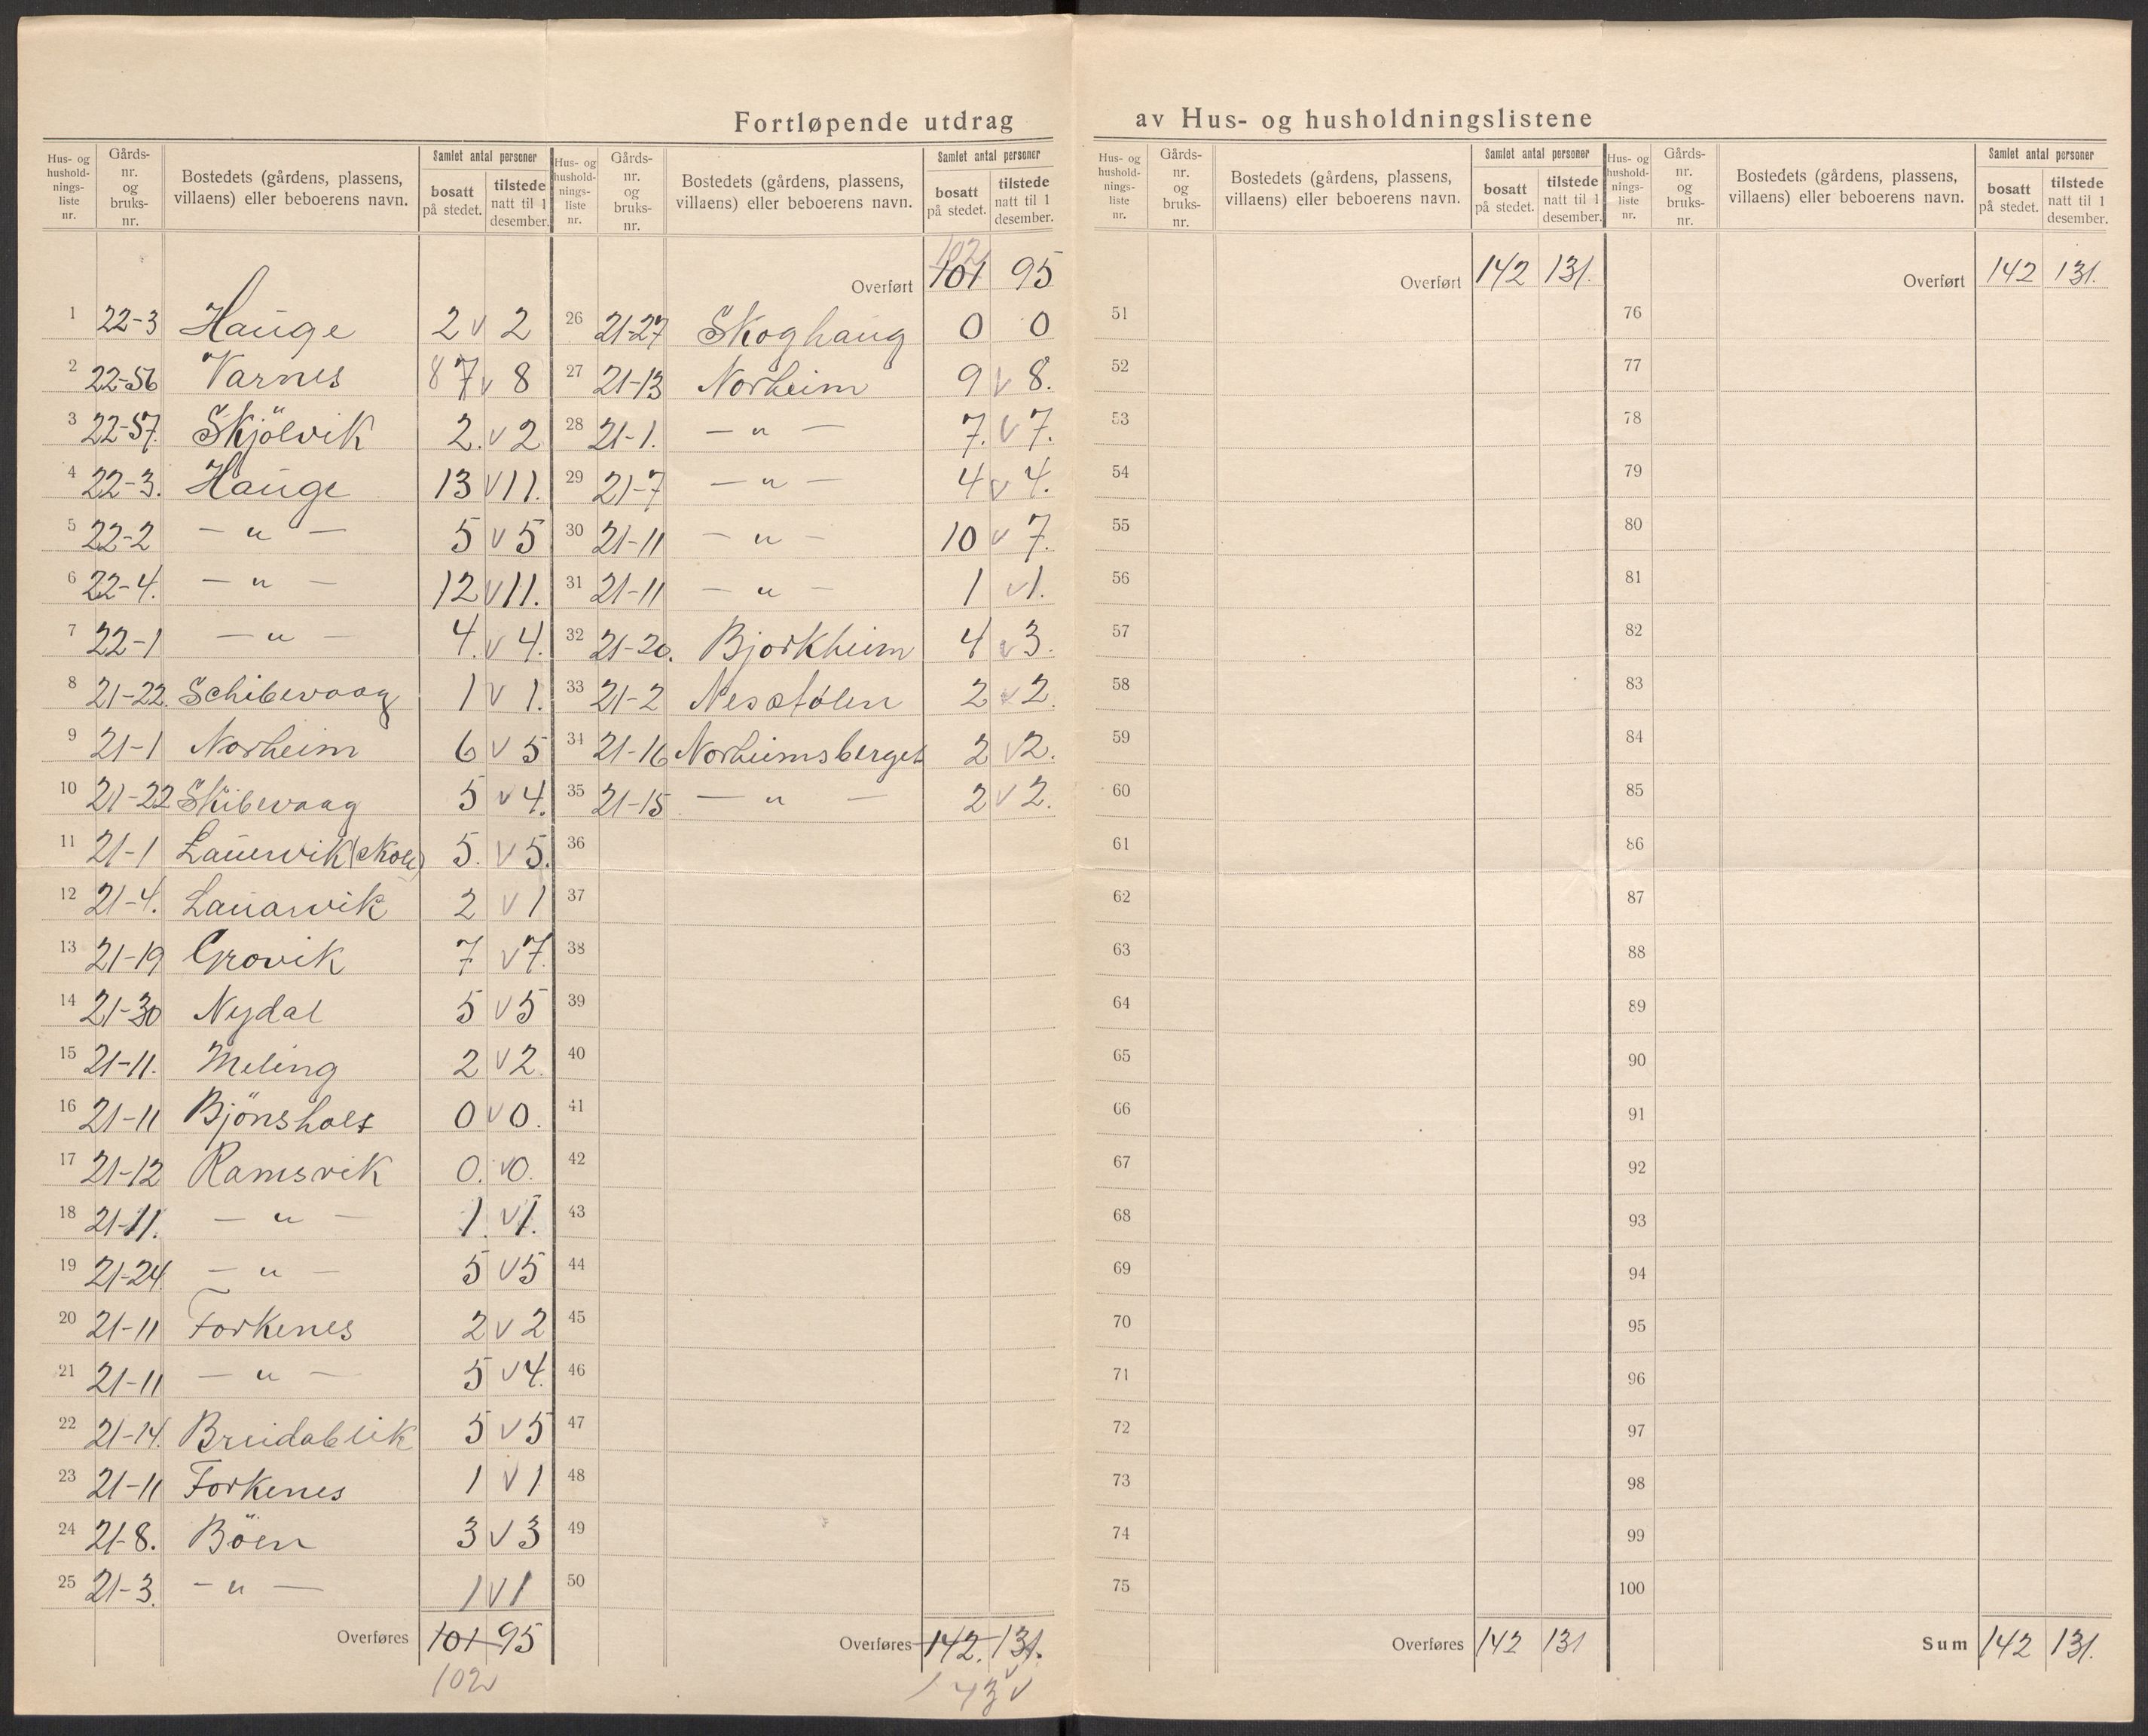 Fortløpende utdrag av Hus- og husholdningslistene
Hus- og husholdnings-liste nr. Gårds-nr. og bruks-nr. Bostedets (gårdens, plassens, villaens) eller beboerens navn. Samlet antal personer bosatt på stedet. tilstede natt til 1 desember.
1 22-3 Hauge 2 v 2
2 22-56 Varnes 8 7 v 8
3 22-57. Skjölvik 2. v 2
4 22-3. Hauge 13 v 11.
5 22-2 — " — 5 v 5
6 22-4. — " — 12 v 11.
7 22-1 — " — 4. v 4.
8 21-22. Schibevaag 1 v 1.
9 21-1 Norheim 6 v 5
10 21-22 Skibevaag 5 v 4.
11 21-1 Lauervik (skole) 5. v 5.
12 21-4. Lauarvik 2 v 1
13 21-19 Grovik 7 v 7.
14 21-30 Nydal 5 v 5
15 21-11. Meling 2 v 2.
16 21-11 Bjönsholt 0 v 0.
17 21-12 Ramsvik 0. v 0.
18 21-11. — " — 1. v 1.
19 21-24. — " — 5 v 5
20 21-11 Forkenes 2 v 2
21 21-11 — " — 5 v 4.
22 21-14. Breidablik 5 v 5
23 21-11 Forkenes 1 v 1
24 21-8. Böen 3 v 3
25 21-3. — " — 1 v 1
Overføres 101 95
102
Hus- og husholdnings-liste nr. Gårds-nr. og bruks-nr. Bostedets (gårdens, plassens, villaens) eller beboerens navn. Samlet antal personer bosatt på stedet. tilstede natt til 1 desember.
102
Overført 101 95
26 21-27 Skoghaug 0 0
27 21-13 Norheim 9 v 8.
28 21-1. — " — 7. v 7.
29 21-7 — " — 4 v 4.
30 21-11 — " — 10 v 7.
31 21-11 — " — 1 v 1.
32 21-20. Bjorkheim 4 v 3.
33 21-2 Nesstølen 2 v 2.
34 21-16 Norheimsberget 2 v 2.
35 21-15 — " — 2 v 2.
36
37
38
39
40
41
42
43
44
45
46
47
48
49
50
Overføres 142. 131.
143 v
Hus- og husholdnings-liste nr. Gårds-nr. og bruks-nr. Bostedets (gårdens, plassens, villaens) eller beboerens navn. Samlet antal personer bosatt på stedet. tilstede natt til 1 desember.
Overført 142 131.
51
52
53
54
55
56
57
58
59
60
61
62
63
64
65
66
67
68
69
70
71
72
73
74
75
Overføres 142 131
Hus- og husholdnings-liste nr. Gårds-nr. og bruks-nr. Bostedets (gårdens, plassens, villaens) eller beboerens navn. Samlet antal personer bosatt på stedet. tilstede natt til 1 desember.
Overført 142 131.
76
77
78
79
80
81
82
83
84
85
86
87
88
89
90
91
92
93
94
95
96
97
98
99
100
Sum 142 131.